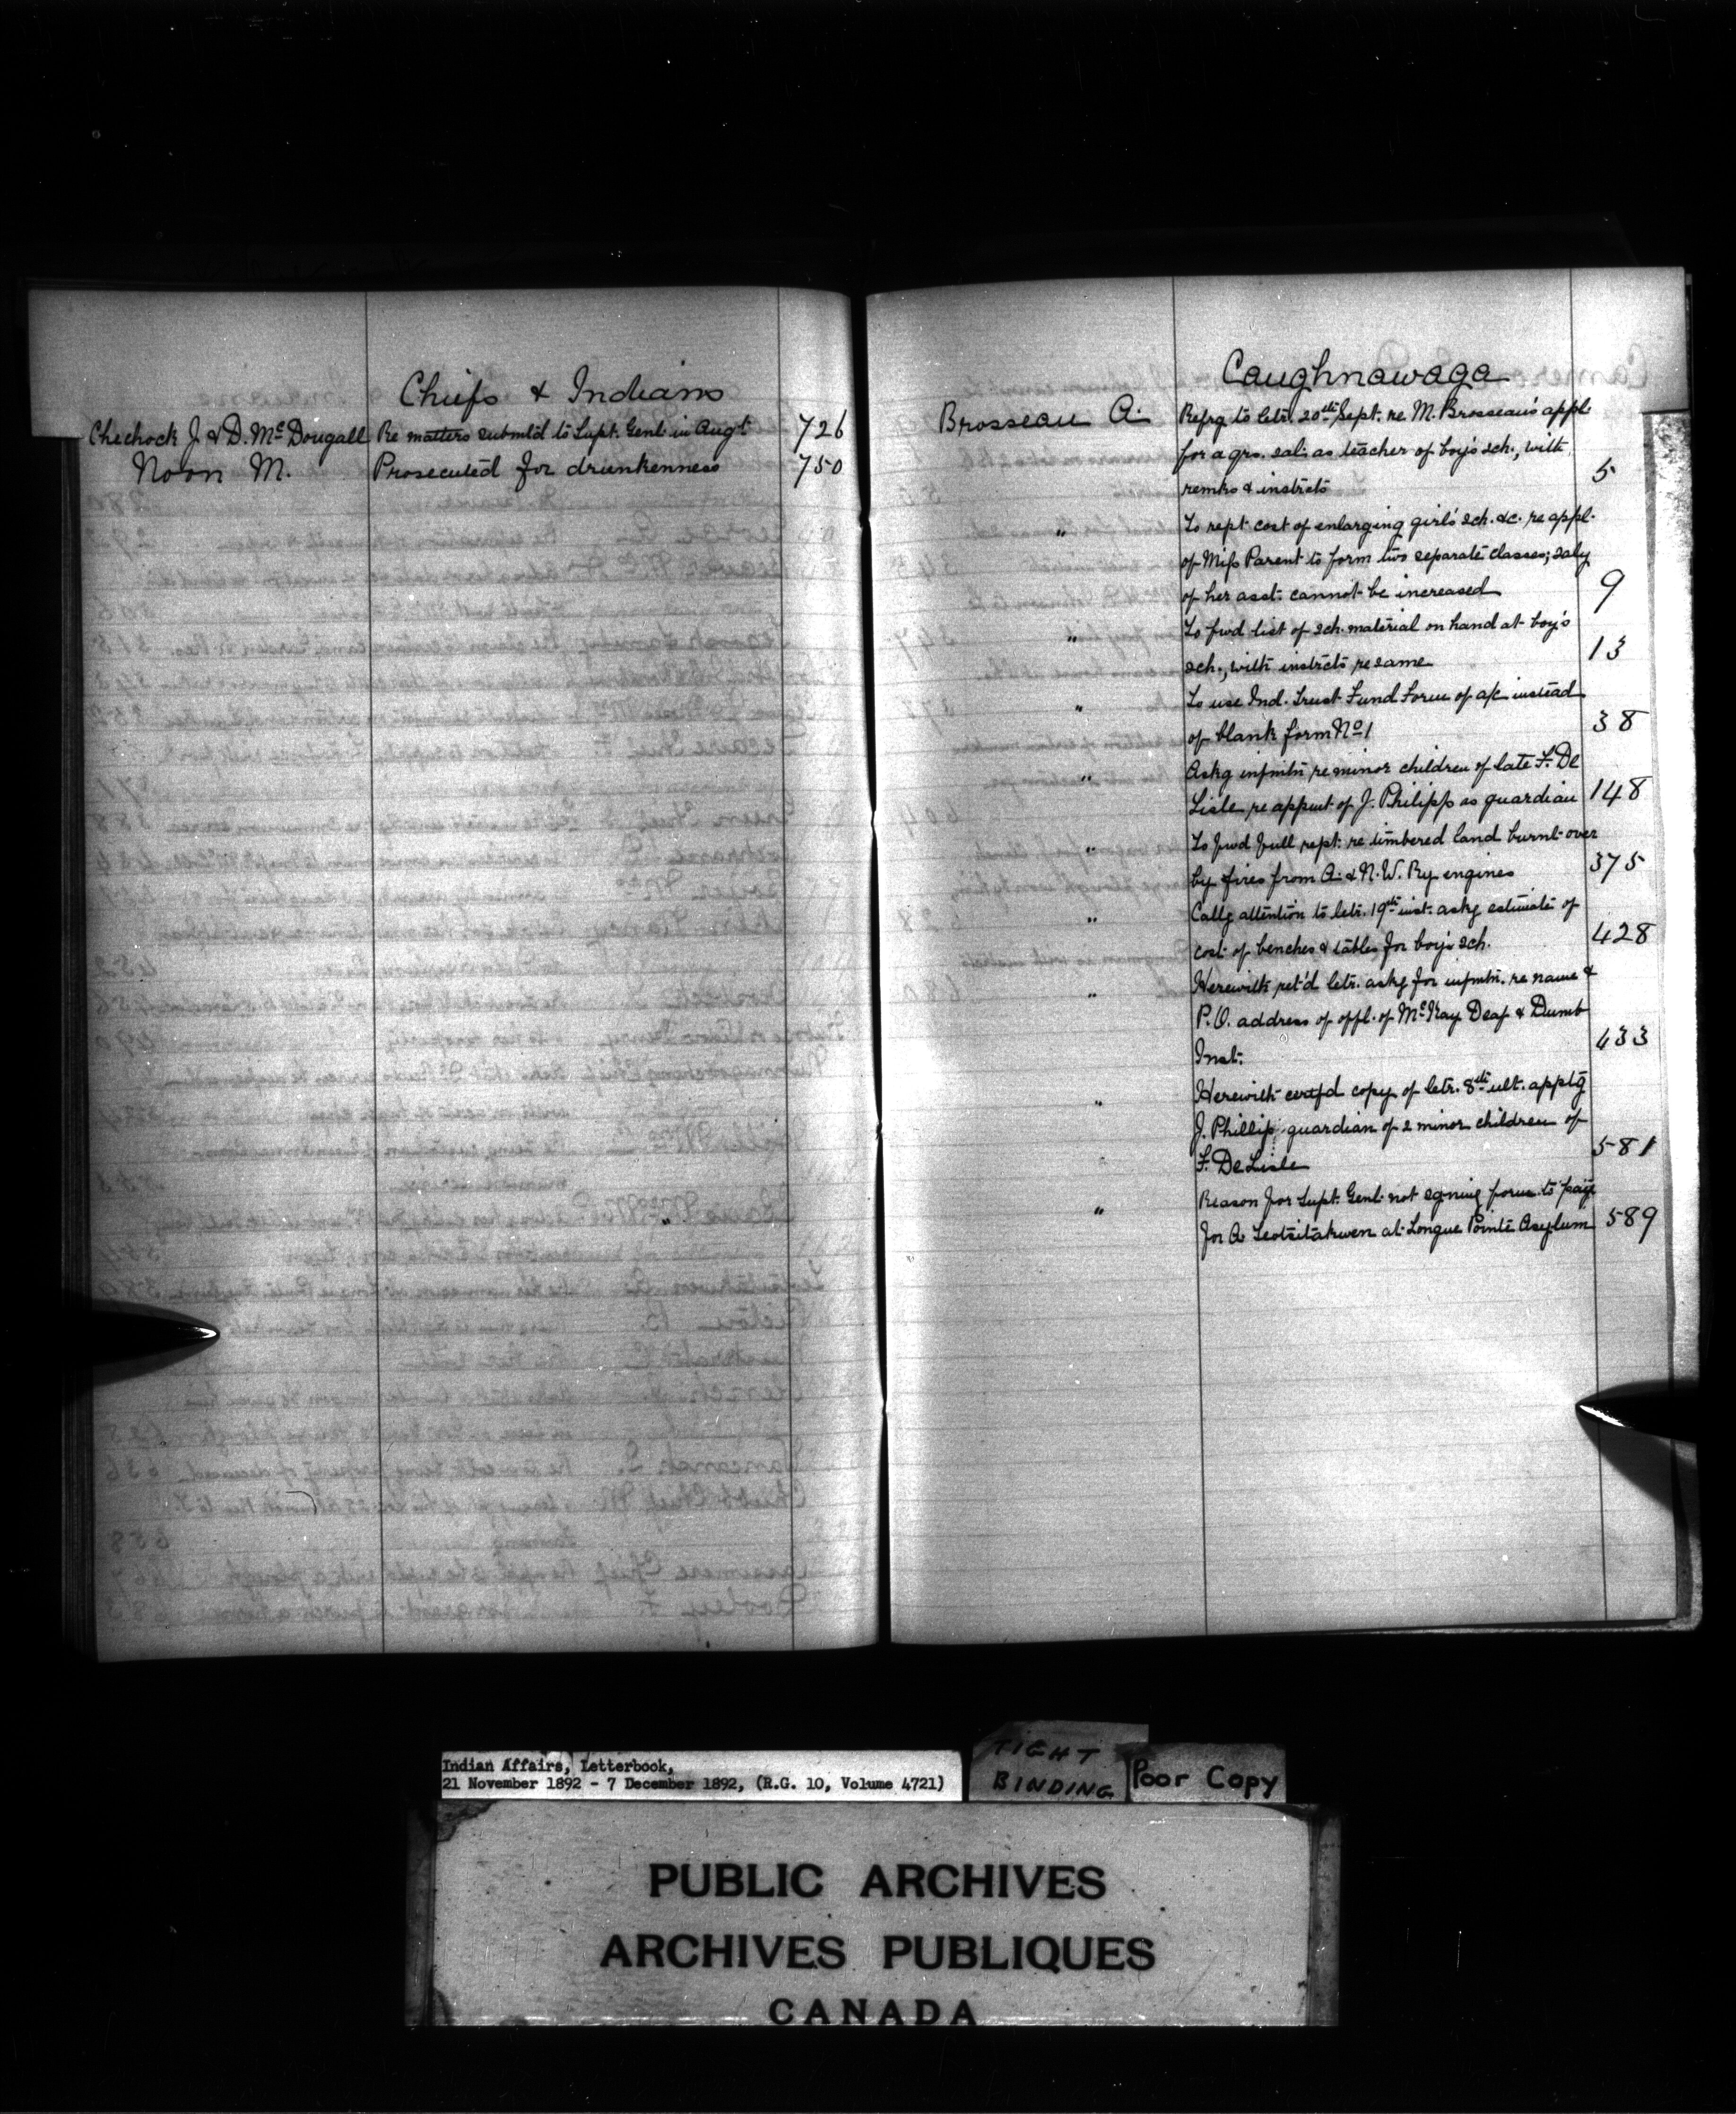 Chiefs & Indians
Chechock J. & D. McDougall Re matters submtd to Supt. Genl. in Augt 726
Noon M. Prosecuted for drunkenness 750
Caughnawaga
Brosseau A. Refrg to letr. 20th Sept. re M. Brosseau's appl.
for a grs. sal. as teacher of boy's sch., with
remks & instrcts 5
" To rept cost of enlarging girl's sch. &c. re appl.
of Miss Parent to form two separate classes; saly
of her asst. cannot be increased 9
" To fwd list of sch. material on hand at boy's
sch., with instrcts re same 13
" To use Ind. Trust Fund Form of a/c instead
of blank form No 1 38
" Askg infmtn re minor children of late F. De
Lisle re appmt of J. Philipp as guardian 148
" To fwd full rept. re timbered land burnt over
by fires from A. & N.W. Ry engines 375
" Callg attention to letr. 19th inst. askg estimate of
cost of benches & tables for boy's sch. 428
" Herewith ret'd letr. askg for infmtn. re name &
P.O. address of offl. of McKay Deaf & Dumb
Inst. 433
" Herewith certfd copy of letr. 8th ult. apptg
J. Phillip guardian of 2 minor children of
F. De Lisle 581
" Reason for Supt. Genl. not signing form to pay
for A. Leotsitakwen at Longue Pointe Asylum 589
Indian Affairs, Letterbook,
21 November 1892 - 7 December 1892, (R.G. 10, Volume 4721)
TIGHT
BINDING
Poor Copy
PUBLIC ARCHIVES
ARCHIVES PUBLIQUES
CANADA